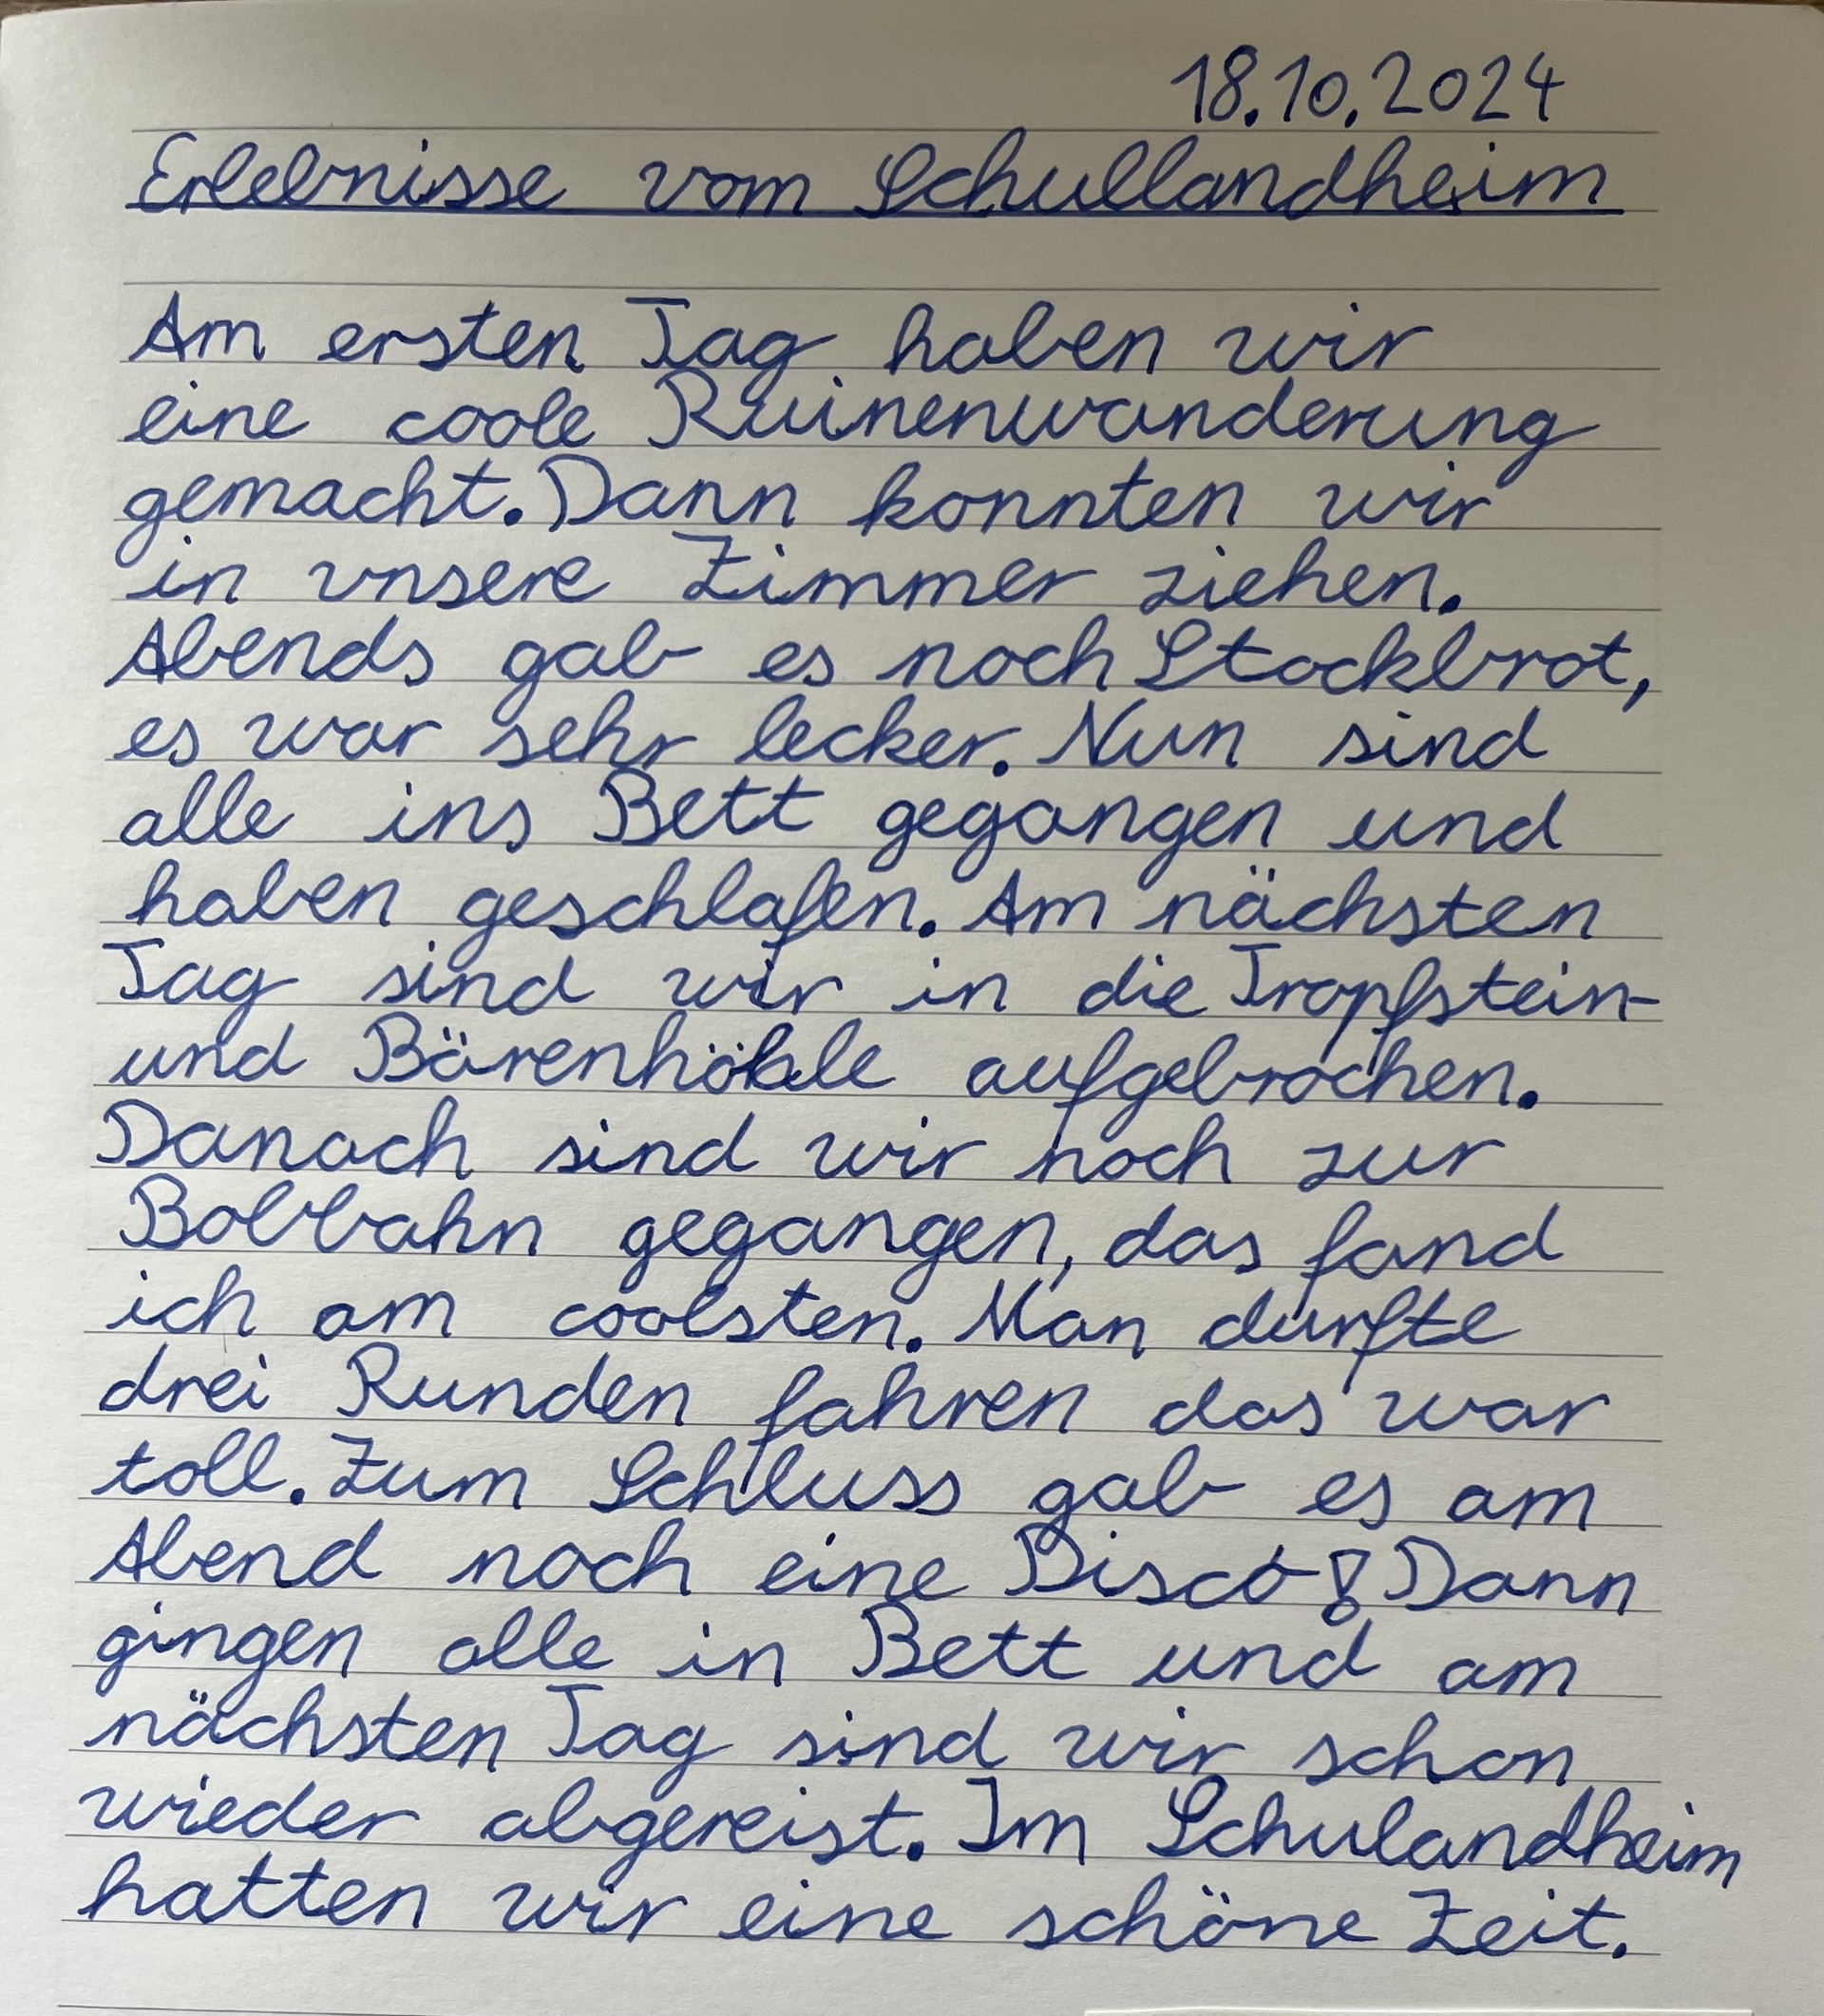 18.10.2024
Erlebnisse vom Schullandheim
Am ersten Tag haben wir
eine coole Ruinenwanderung
gemacht. Dann konnten wir
in unsere Zimmer ziehen.
Abends gab es noch Stockbrot,
es war sehr lecker. Nun sind
alle ins Bett gegangen und
haben geschlafen. Am nächsten
Tag sind wir in die Tropfstein-
und Bärenhöhle aufgebrochen.
Danach sind wir noch zur
Bobbahn gegangen, das fand
ich am coolsten. Man durfte
drei Runden fahren das war
toll. Zum Schluss gab es am
Abend noch eine Disco! Dann
gingen alle in Bett und am
nächsten Tag sind wir schon
wieder abgereist. Im Schulandheim
hatten wir eine schöne Zeit.